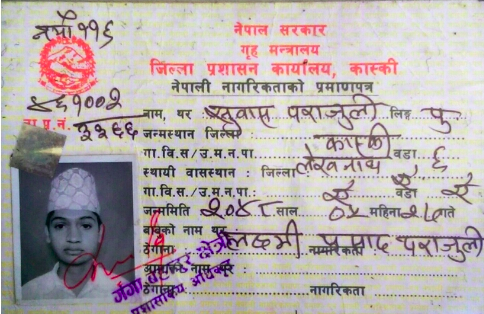 नेपाल सरकार
गृह मन्त्रालय
जिल्ला प्रशासन कार्यालय, कास्की
नेपाली नागरिकताको प्रमाणपत्र
४६१००२
ना.प्र.नं. ३२६६
नाम, थर सुवास पराजुली लिङ्ग पु
जन्मस्थान जिल्ला कास्की
गा.वि.स/उ.म.न.पा. लेखनाथ वडा ६
स्थायी वासस्थान : जिल्ला
गा.वि.स/उ.म.न.पा.: ऐ ऐ वडा ऐ
जन्ममिति २०४८ साल ०४ महिना गते
बाबुको नाम थर लक्ष्मी प्रसाद पराजुली
ठेगाना नागरिकता
आमाको नाम थर
ठेगाना नागरिकता
गंगा बहादुर क्षेत्री
प्रशासकीय अधिकृत